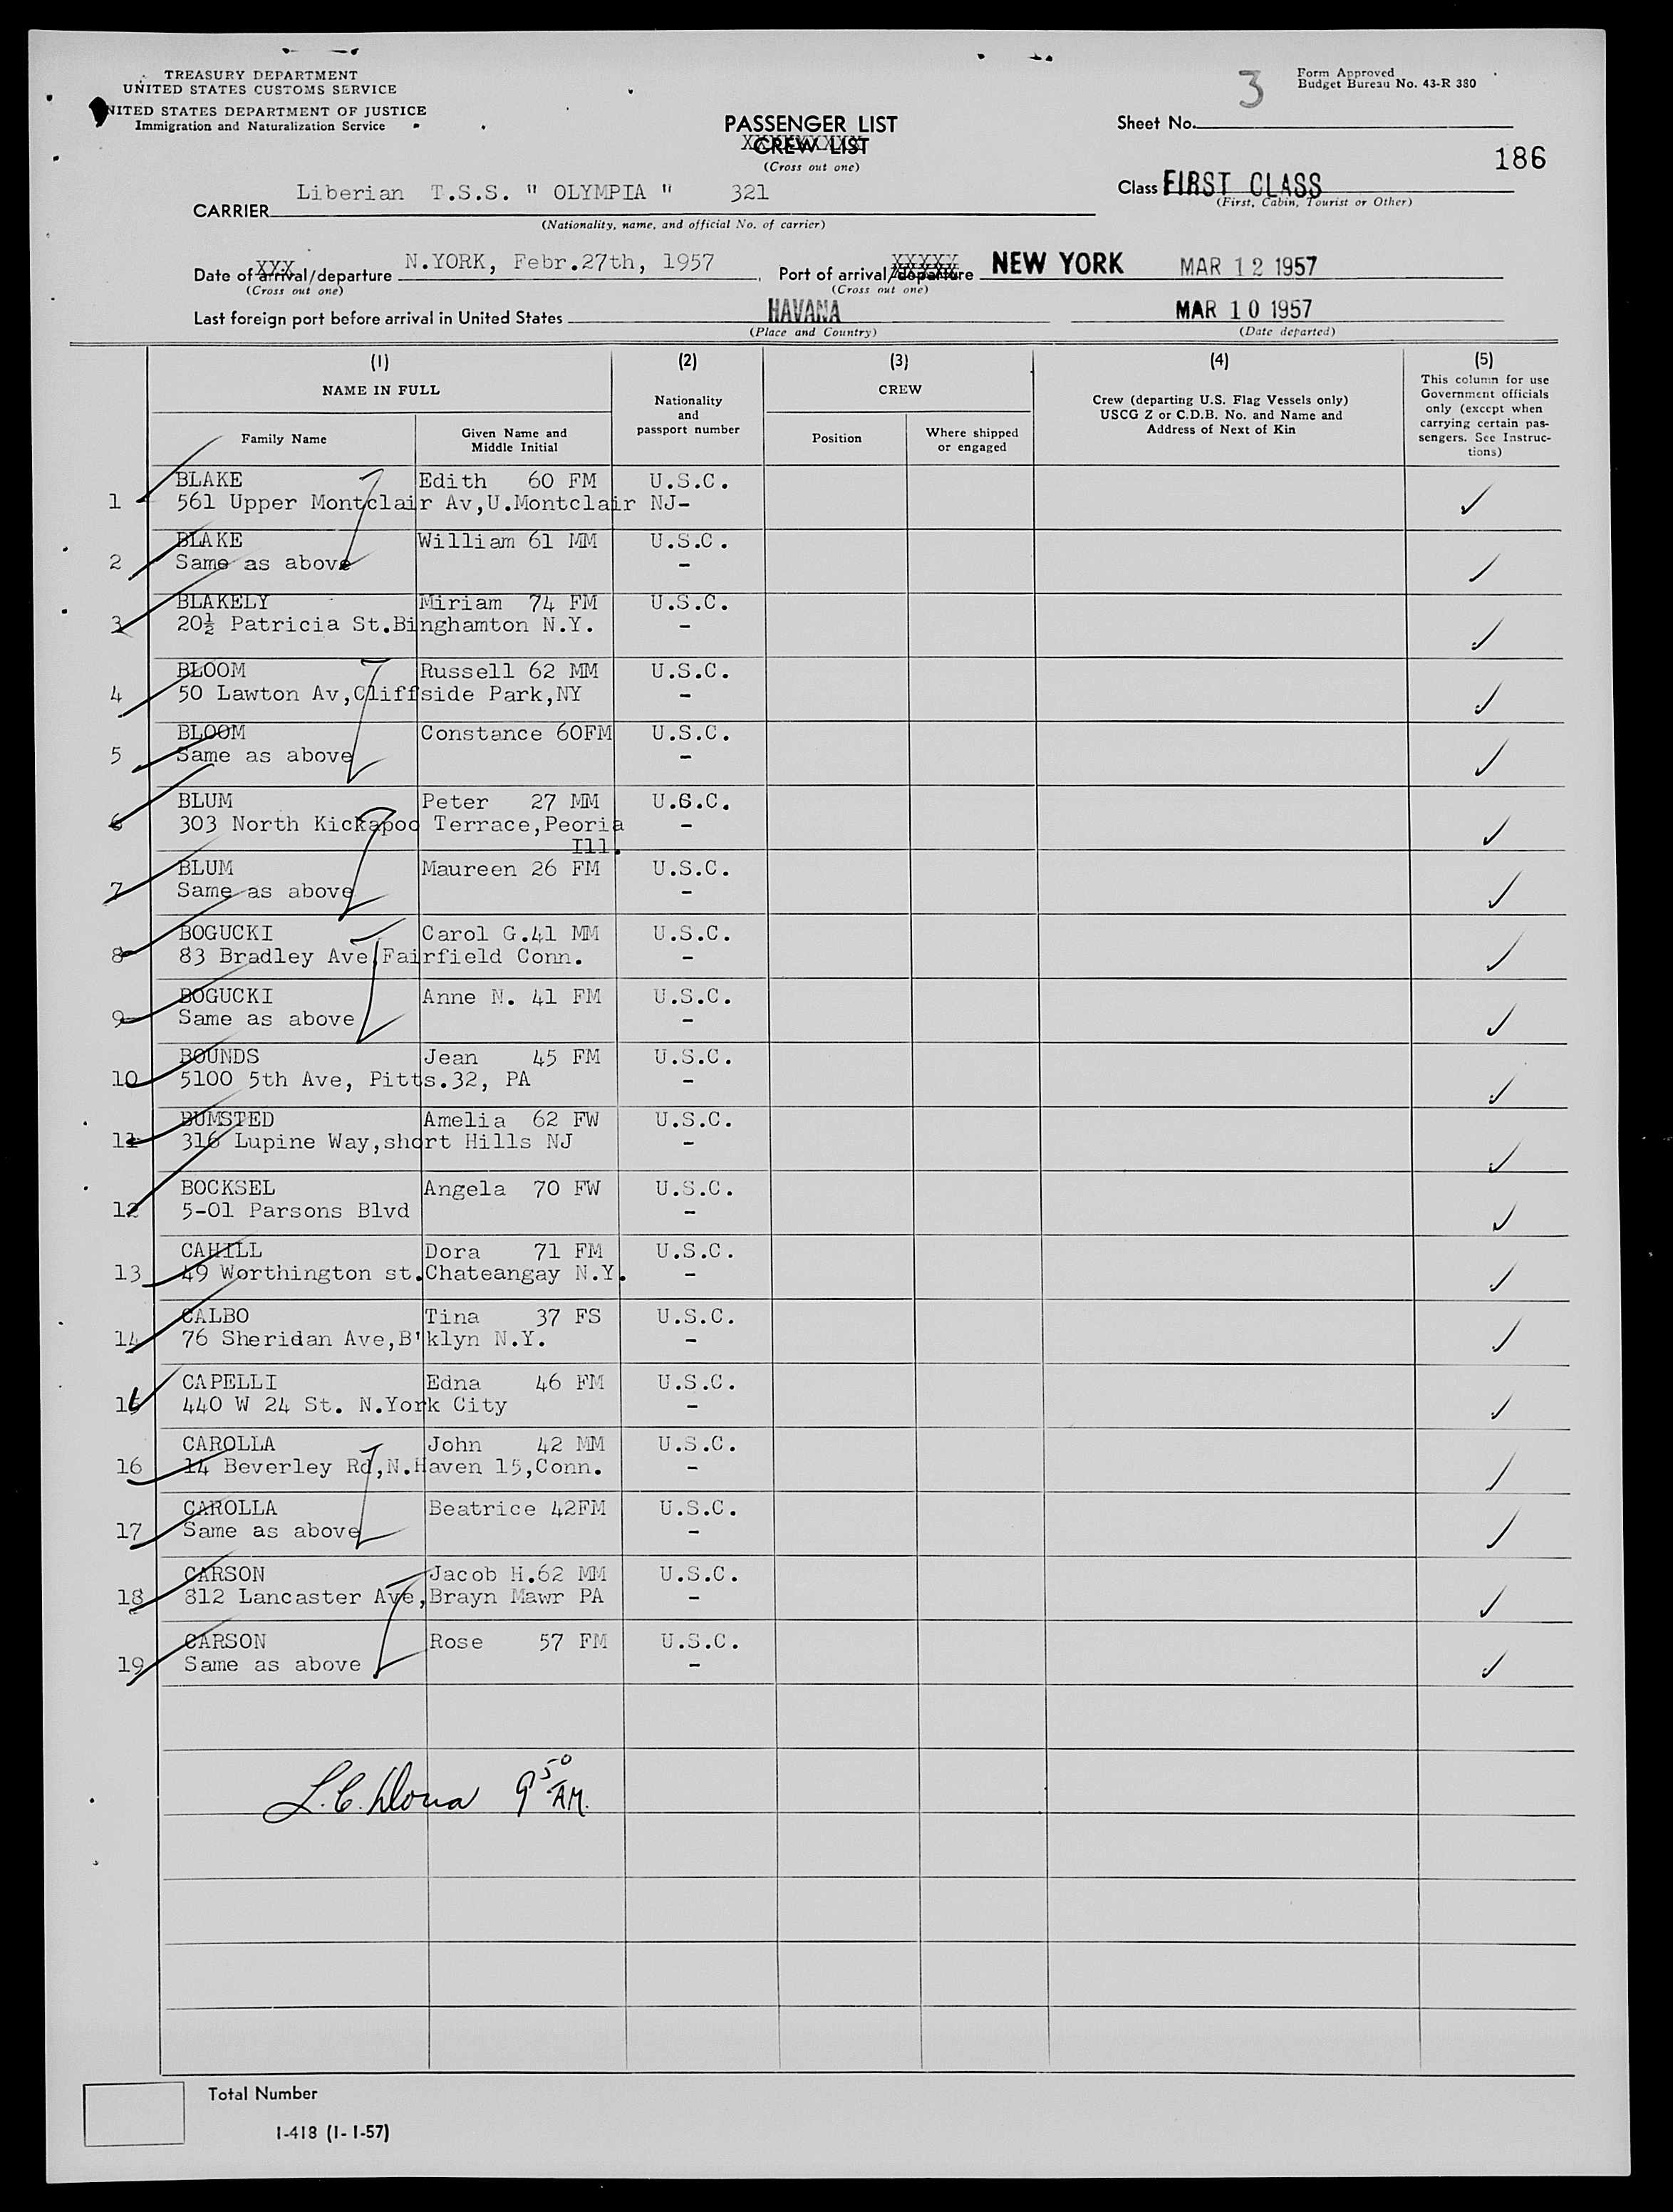 TREASURY DEPARTMENT
UNITED STATES CUSTOMS SERVICE
NITED STATES DEPARTMENT OF JUSTICE
Immigration and Naturalization Service
3
Form Approved
Budget Bureau No. 43-R 380
PASSENGER LIST
CREW LIST
(Cross out one)
Sheet No.
186
CARRIER Liberian T.S.S. " OLYMPIA " 321
(Nationality, name, and official No. of carrier)
Class FIRST CLASS
(First, Cabin, Tourist or Other)
Date of arrival/departure N.YORK, Febr.27th, 1957, Port of arrival/departure NEW YORK MAR 12 1957
(Cross out one) (Cross out one)
Last foreign port before arrival in United States HAVANA MAR 10 1957
(Place and Country) (Date departed)
(1) (2) (3) (4) (5)
NAME IN FULL
Nationality and passport number
CREW
Crew (departing U.S. Flag Vessels only)
USCG Z or C.D.B. No. and Name and
Address of Next of Kin
This column for use
Government officials
only (except when
carrying certain pas-
sengers. See Instruc-
tions)
Family Name
Given Name and
Middle Initial
Position
Where shipped
or engaged
1 BLAKE Edith 60 FM U.S.C.
561 Upper Montclair Av,U.Montclair NJ-
2 BLAKE William 61 MM U.S.C.
Same as above -
3 BLAKELY Miriam 74 FM U.S.C.
20½ Patricia St.Binghamton N.Y. -
4 BLOOM Russell 62 MM U.S.C.
50 Lawton Av,Cliffside Park,NY -
5 BLOOM Constance 60FM U.S.C.
Same as above -
6 BLUM Peter 27 MM U.S.C.
303 North Kickapoo Terrace,Peoria -
Ill.
7 BLUM Maureen 26 FM U.S.C.
Same as above -
8 BOGUCKI Carol G.41 MM U.S.C.
83 Bradley Ave,Fairfield Conn. -
9 BOGUCKI Anne N. 41 FM U.S.C.
Same as above -
10 BOUNDS Jean 45 FM U.S.C.
5100 5th Ave, Pitts.32, PA -
11 BUMSTED Amelia 62 FW U.S.C.
316 Lupine Way,short Hills NJ -
12 BOCKSEL Angela 70 FW U.S.C.
5-01 Parsons Blvd -
13 CAHILL Dora 71 FM U.S.C.
49 Worthington st.Chateangay N.Y. -
14 CALBO Tina 37 FS U.S.C.
76 Sheridan Ave,B'klyn N.Y. -
15 CAPELLI Edna 46 FM U.S.C.
440 W 24 St. N.York City -
16 CAROLLA John 42 MM U.S.C.
14 Beverley Rd,N.Haven 15,Conn. -
17 CAROLLA Beatrice 42FM U.S.C.
Same as above -
18 CARSON Jacob H.62 MM U.S.C.
812 Lancaster Ave,Brayn Mawr PA -
19 CARSON Rose 57 FM U.S.C.
Same as above -
L.C. 9 50 AM.
Total Number
I-418 (1-1-57)